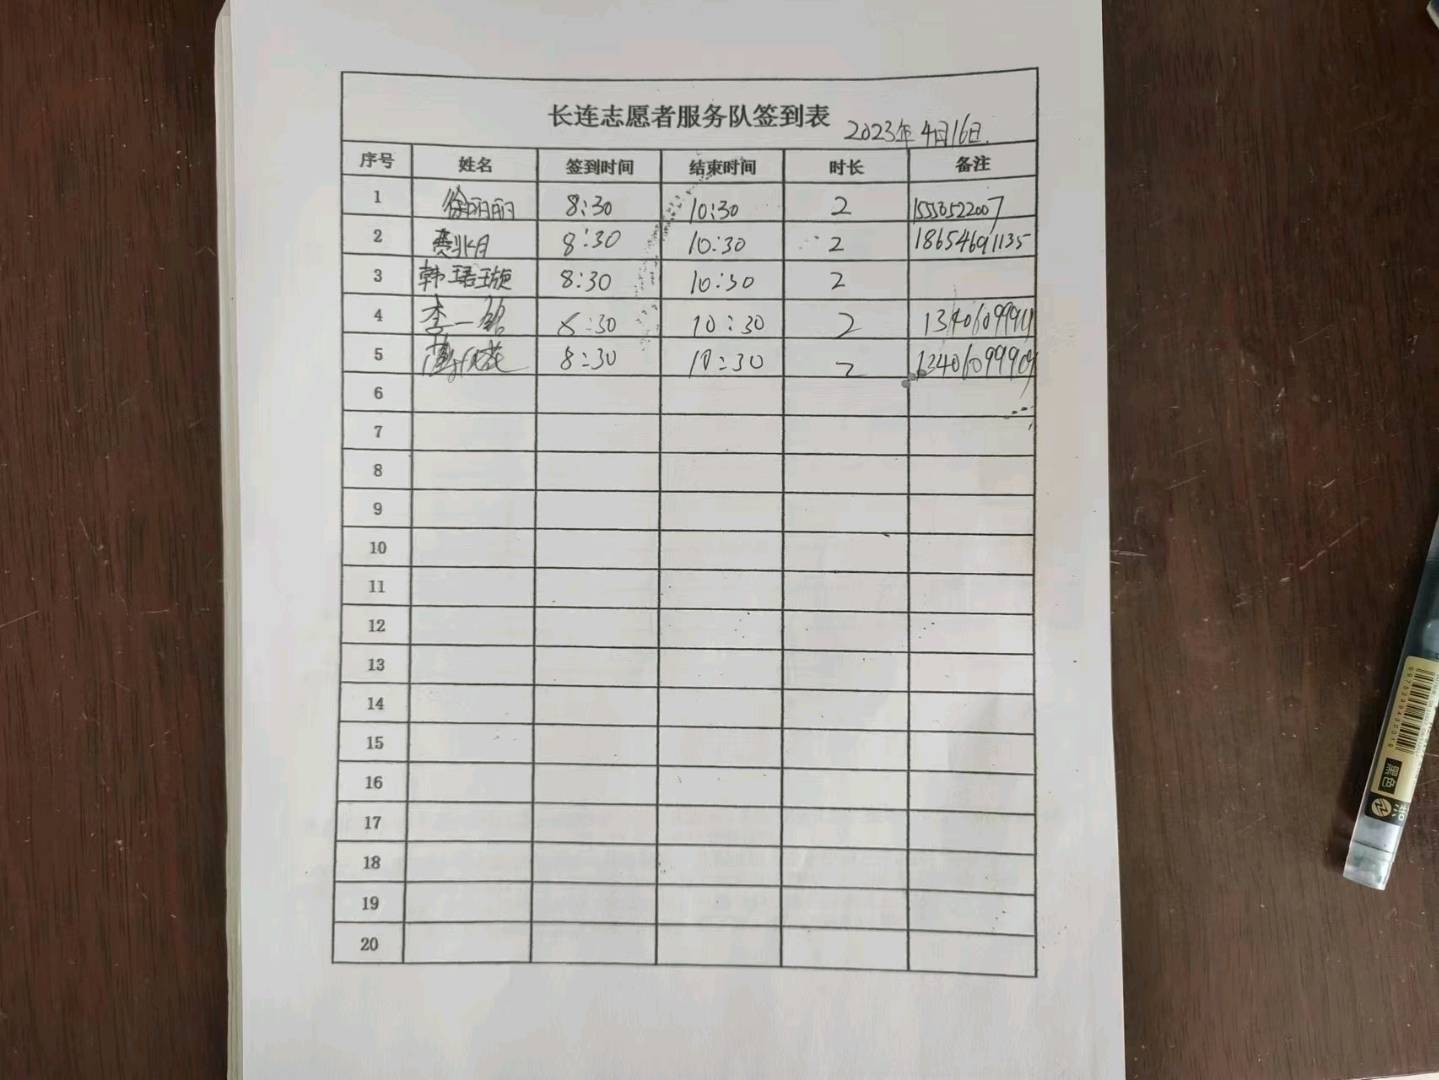 长连志愿者服务队签到表 2023年4月16日
序号 姓名 签到时间 结束时间 时长 备注
1 徐丽丽 8:30 10:30 2 15530522007
2 8:30 10:30 2 18654691135
3 韩珺璇 8:30 10:30 2
4 李一铭 8:30 10:30 2
5 8:30 10:30 2
6
7
8
9
10
11
12
13
14
15
16
17
18
19
20
黑色